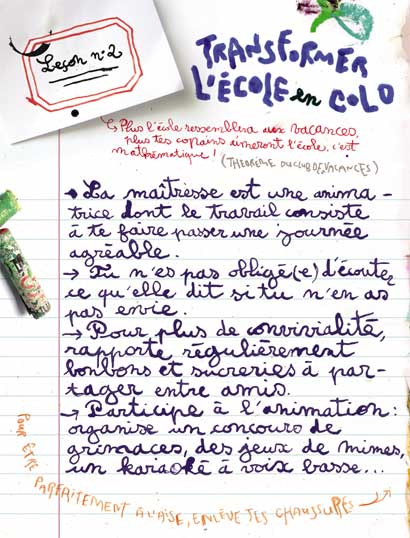 Leçon n°2
TRANSFORMER
L'ÉCOLE en COLO
↳ Plus l'école ressemblera aux vacances,
plus tes copains aimeront l'école, c'est
mathématique ! (THÉORÈME DU CLUB DES VACANCES)
→ La maîtresse est une anima-
trice dont le travail consiste
à te faire passer une journée
agréable.
→ Tu n'es pas obligé(e) d'écouter
ce qu'elle dit si tu n'en as
pas envie.
→ Pour plus de convivialité,
rapporte régulièrement
bonbons et sucreries à par-
tager entre amis.
→ Participe à l'animation :
organise un concours de
grimaces, des jeux de mimes,
un karaoké à voix basse...
POUR ÊTRE
PARFAITEMENT À L'AISE, ENLÈVE TES CHAUSSURES →